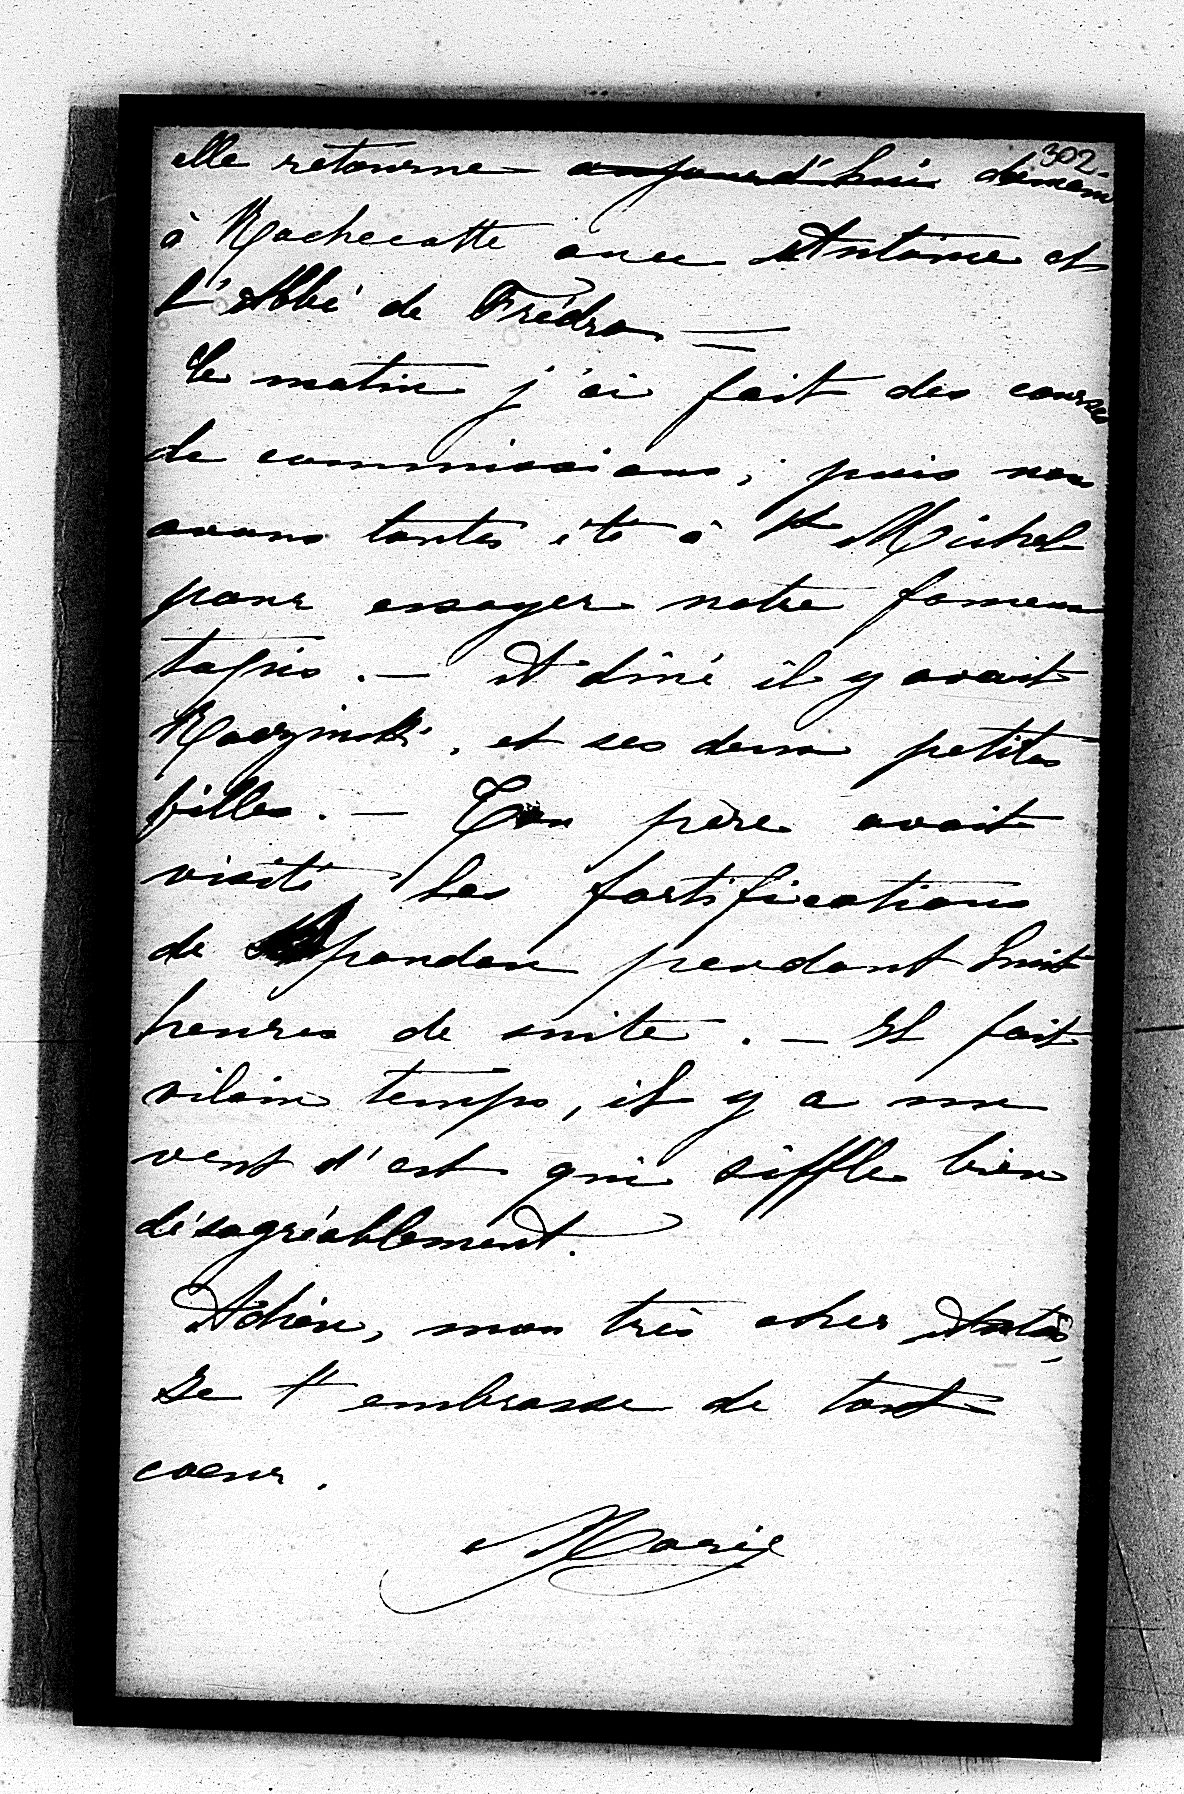 302
elle retourne aujourd'hui demain
à Rochecotte avec Antoine et
L'Abbé de Frédro —
Le matin j'ai fait des courses
de commissions, puis nous
avons toutes été à St Michel
pour essayer notre fameux
tapis. — A diné il y avait
Raczinski, et ses deux petites
filles. — Ton père avait
visité les fortifications
de Spandau pendant huit
heures de suite. — Il fait
vilain temps, il y a un
vent d'est qui siffle bien
désagréablement.
Adieu, mon très cher
Je t'embrasse de tout
coeur.
Marie